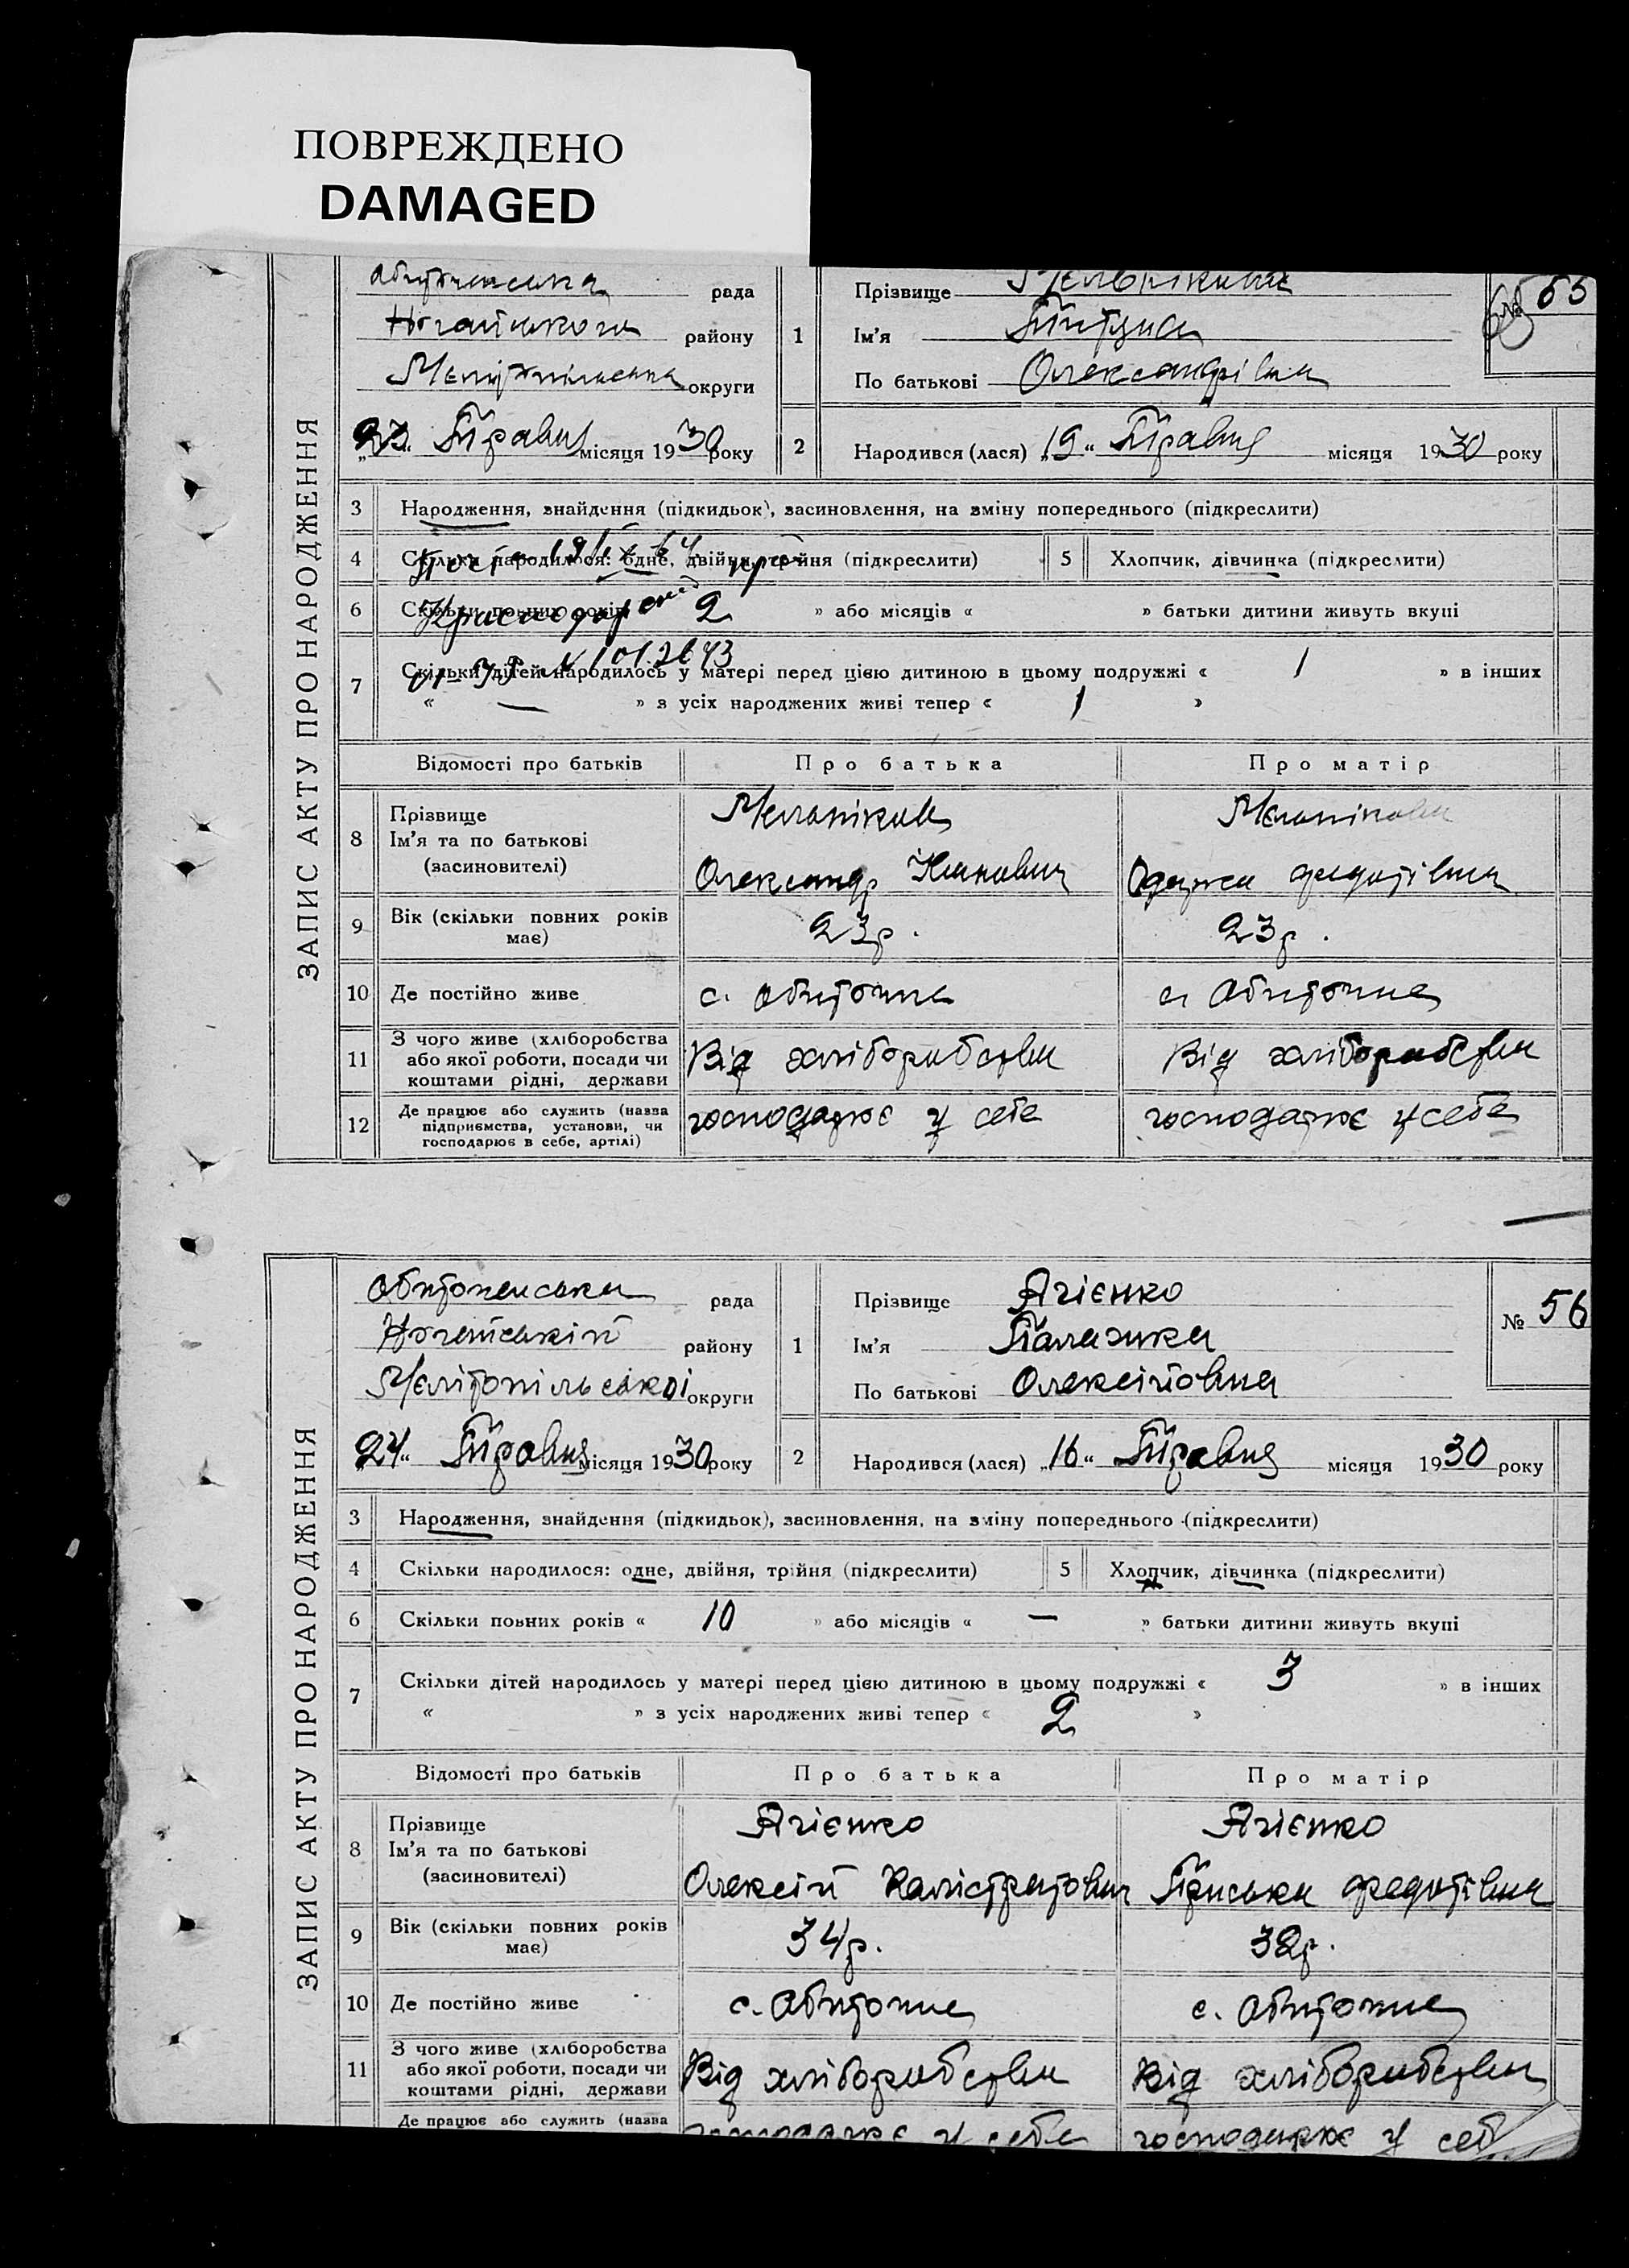 ПОВРЕЖДЕНО
DAMAGED
ЗАПИС АКТУ ПРО НАРОДЖЕННЯ
рада
району
округи
Прізвище
Ім'я
По батькові Олександрівна
№ 55
23 Травня місяця 1930 року
2 Народився (лася) „19“ Травня місяця 1930 року
3 Народження, знайдення (підкидьок), засиновлення, на зміну попереднього (підкреслити)
4 Скільки народилося: одне, двійня, трійня (підкреслити) 5 Хлопчик, дівчинка (підкреслити)
6 Скільки повних років 2 » або місяців « » батьки дитини живуть вкупі
7 Скільки дітей народилось у матері перед цією дитиною в цьому подружжі « 1 » в інших
« — » з усіх народжених живі тепер « 1 »
Відомості про батьків Про батька Про матір
8 Прізвище
Ім'я та по батькові
(засиновителі)
Олександр
Федотівна
9 Вік (скільки повних років має) 23 р. 23 р.
10 Де постійно живе с. Обиточне с. Обиточне
11 З чого живе (хліборобства або якої роботи, посади чи коштами рідні, держави Від хліборобства Від хліборобства
12 Де працює або служить (назва підприємства, установи, чи господарює в себе, артілі) господарює у себе господарює у себе
ЗАПИС АКТУ ПРО НАРОДЖЕННЯ
Обиточенська рада
Ногайський району
Мелітопільської округи
1 Прізвище Ягієнко
Ім'я Палажка
По батькові Олексійовна
№ 56
„24“ Травня місяця 1930 року
2 Народився (лася) „16“ Травня місяця 1930 року
3 Народження, знайдення (підкидьок), засиновлення, на зміну попереднього (підкреслити)
4 Скільки народилося: одне, двійня, трійня (підкреслити) 5 Хлопчик, дівчинка (підкреслити)
6 Скільки повних років « 10 » або місяців « — » батьки дитини живуть вкупі
7 Скільки дітей народилось у матері перед цією дитиною в цьому подружжі « 3 » в інших
« » з усіх народжених живі тепер « 2 »
Відомості про батьків Про батька Про матір
8 Прізвище Ягієнко Ягієнко
Ім'я та по батькові
(засиновителі) Олексій Калістратович Федотівна
9 Вік (скільки повних років має) 34 р. 32 р.
10 Де постійно живе с. Обиточне с. Обиточне
11 З чого живе (хліборобства або якої роботи, посади чи коштами рідні, держави Від хліборобства Від хліборобства
Де працює або служить (назва господарює у себе господарює у себе